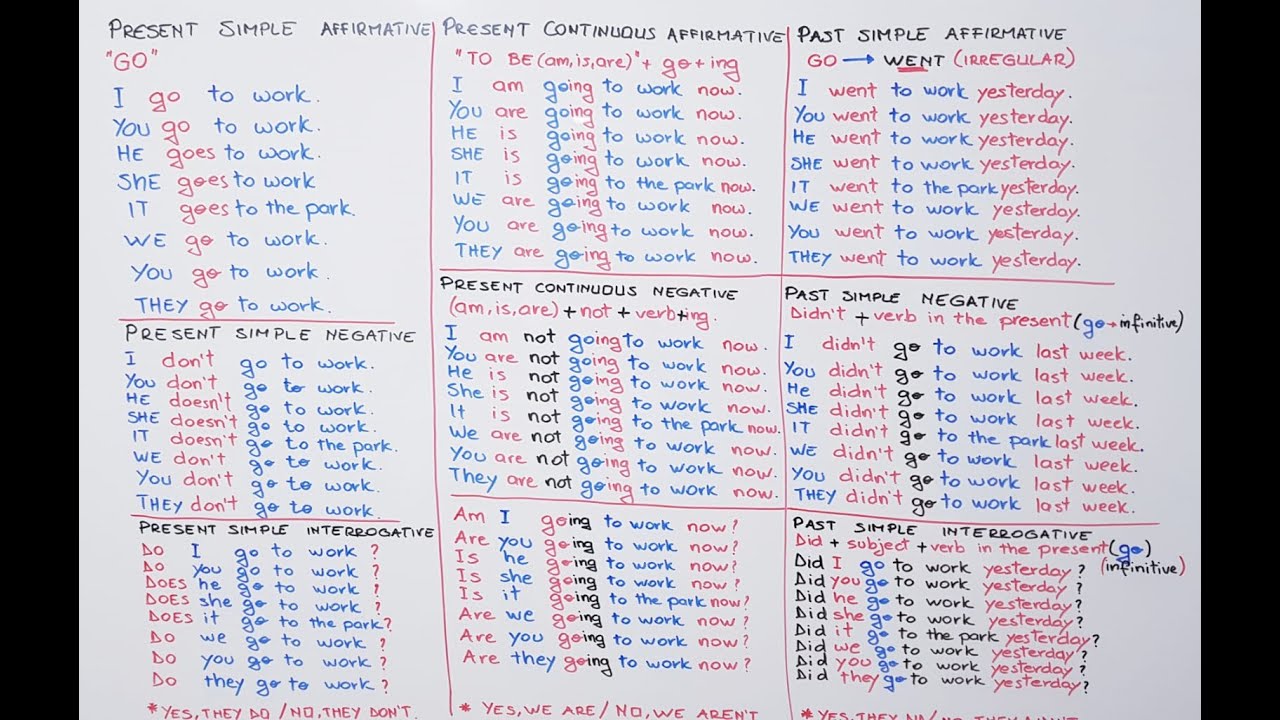 PRESENT SIMPLE AFFIRMATIVE
"GO"
I go to work.
YOU go to work.
HE goes to work.
SHE goes to work
IT goes to the park.
WE go to work.
YOU go to work.
THEY go to work.
PRESENT SIMPLE NEGATIVE
I don't go to work.
YOU don't go to work.
HE doesn't go to work.
SHE doesn't go to work.
IT doesn't go to the park.
WE don't go to work.
YOU don't go to work.
THEY don't go to work.
PRESENT SIMPLE INTERROGATIVE
DO I go to work ?
DO you go to work ?
DOES he go to work ?
DOES she go to work ?
DOES it go to the park?
DO we go to work ?
DO you go to work ?
DO they go to work ?
*YES, THEY DO / NO, THEY DON'T.
PRESENT CONTINUOUS AFFIRMATIVE
"TO BE (am, is, are)" + go + ing
I am going to work now.
YOU are going to work now.
HE is going to work now.
SHE is going to work now.
IT is going to the park now.
WE are going to work now.
YOU are going to work now.
THEY are going to work now.
PRESENT CONTINUOUS NEGATIVE
(am, is, are) + not + verb+ing.
I am not going to work now.
You are not going to work now.
He is not going to work now.
She is not going to work now.
It is not going to the park now.
We are not going to work now.
You are not going to work now.
They are not going to work now.
Am I going to work now?
Are you going to work now?
Is he going to work now?
Is she going to work now?
Is it going to the park now?
Are we going to work now?
Are you going to work now?
Are they going to work now?
* YES, WE ARE / NO, WE AREN'T
PAST SIMPLE AFFIRMATIVE
GO → WENT (IRREGULAR)
I went to work yesterday.
YOU went to work yesterday.
HE went to work yesterday.
SHE went to work yesterday.
IT went to the park yesterday.
WE went to work yesterday.
YOU went to work yesterday.
THEY went to work yesterday.
PAST SIMPLE NEGATIVE
Didn't + verb in the present (go → infinitive)
I didn't go to work last week.
YOU didn't go to work last week.
He didn't go to work last week.
SHE didn't go to work last week.
IT didn't go to the park last week.
WE didn't go to work last week.
YOU didn't go to work last week.
THEY didn't go to work last week.
PAST SIMPLE INTERROGATIVE
Did + subject + verb in the present (go)
(infinitive)
Did I go to work yesterday ?
Did you go to work yesterday ?
Did he go to work yesterday ?
Did she go to work yesterday ?
Did it go to the park yesterday?
Did we go to work yesterday?
Did you go to work yesterday ?
Did they go to work yesterday?
* YES, THEY